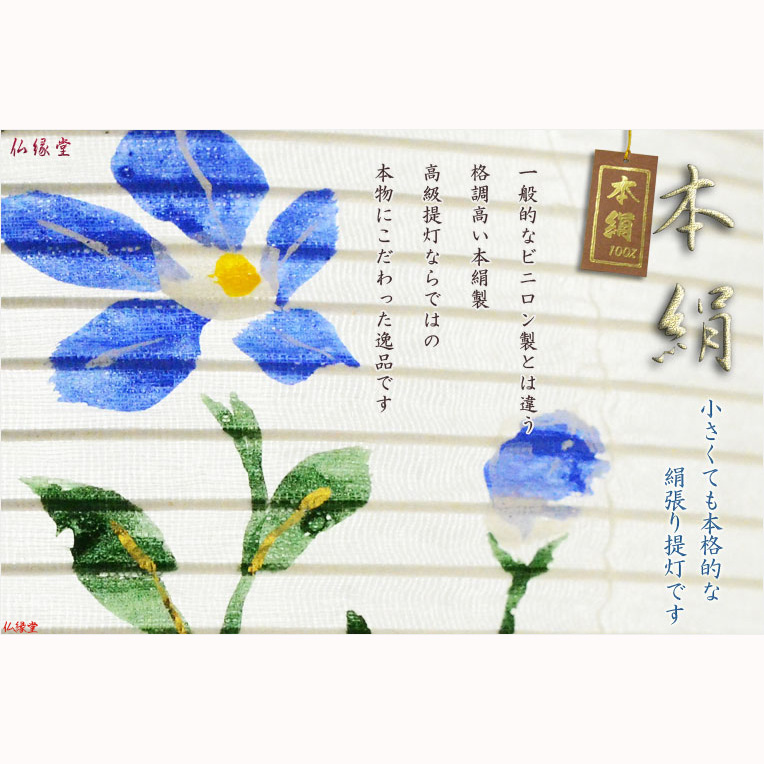 仏縁堂
本絹
本絹
100%
小さくても本格的な
絹張り提灯です
一般的なビニロン製とは違う
格調高い本絹製
高級提灯ならではの
本物にこだわった逸品です
仏縁堂